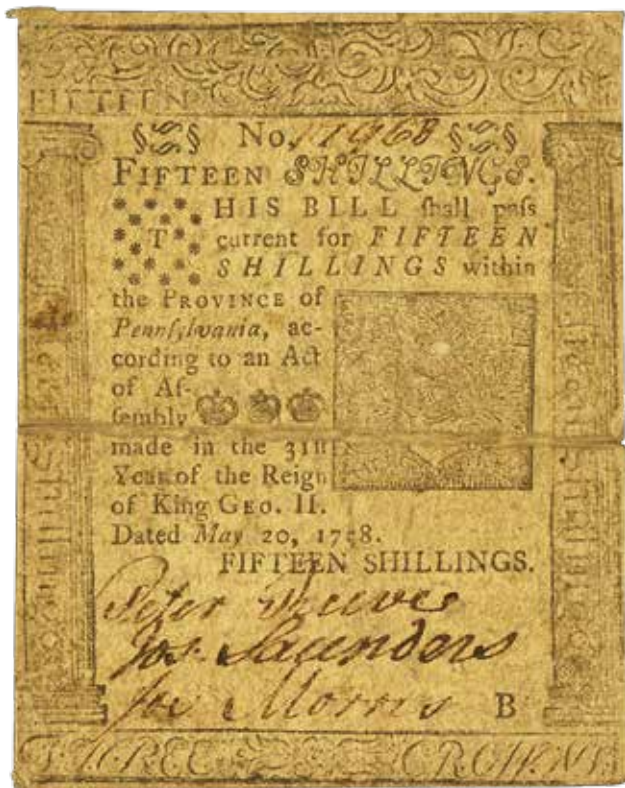 FIFTEEN
No. 11968
FIFTEEN SHILLINGS.
THIS BILL ſhall paſs
current for FIFTEEN
SHILLINGS within
the PROVINCE of
Pennſylvania, ac-
cording to an Act
of Aſ-
ſembly
made in the 31ſt
Year of the Reign
of King GEO. II.
Dated May 20, 1758.
FIFTEEN SHILLINGS.
Peter Reeve
Jos. Saunders
Jos Morris B
THREE CROWNS